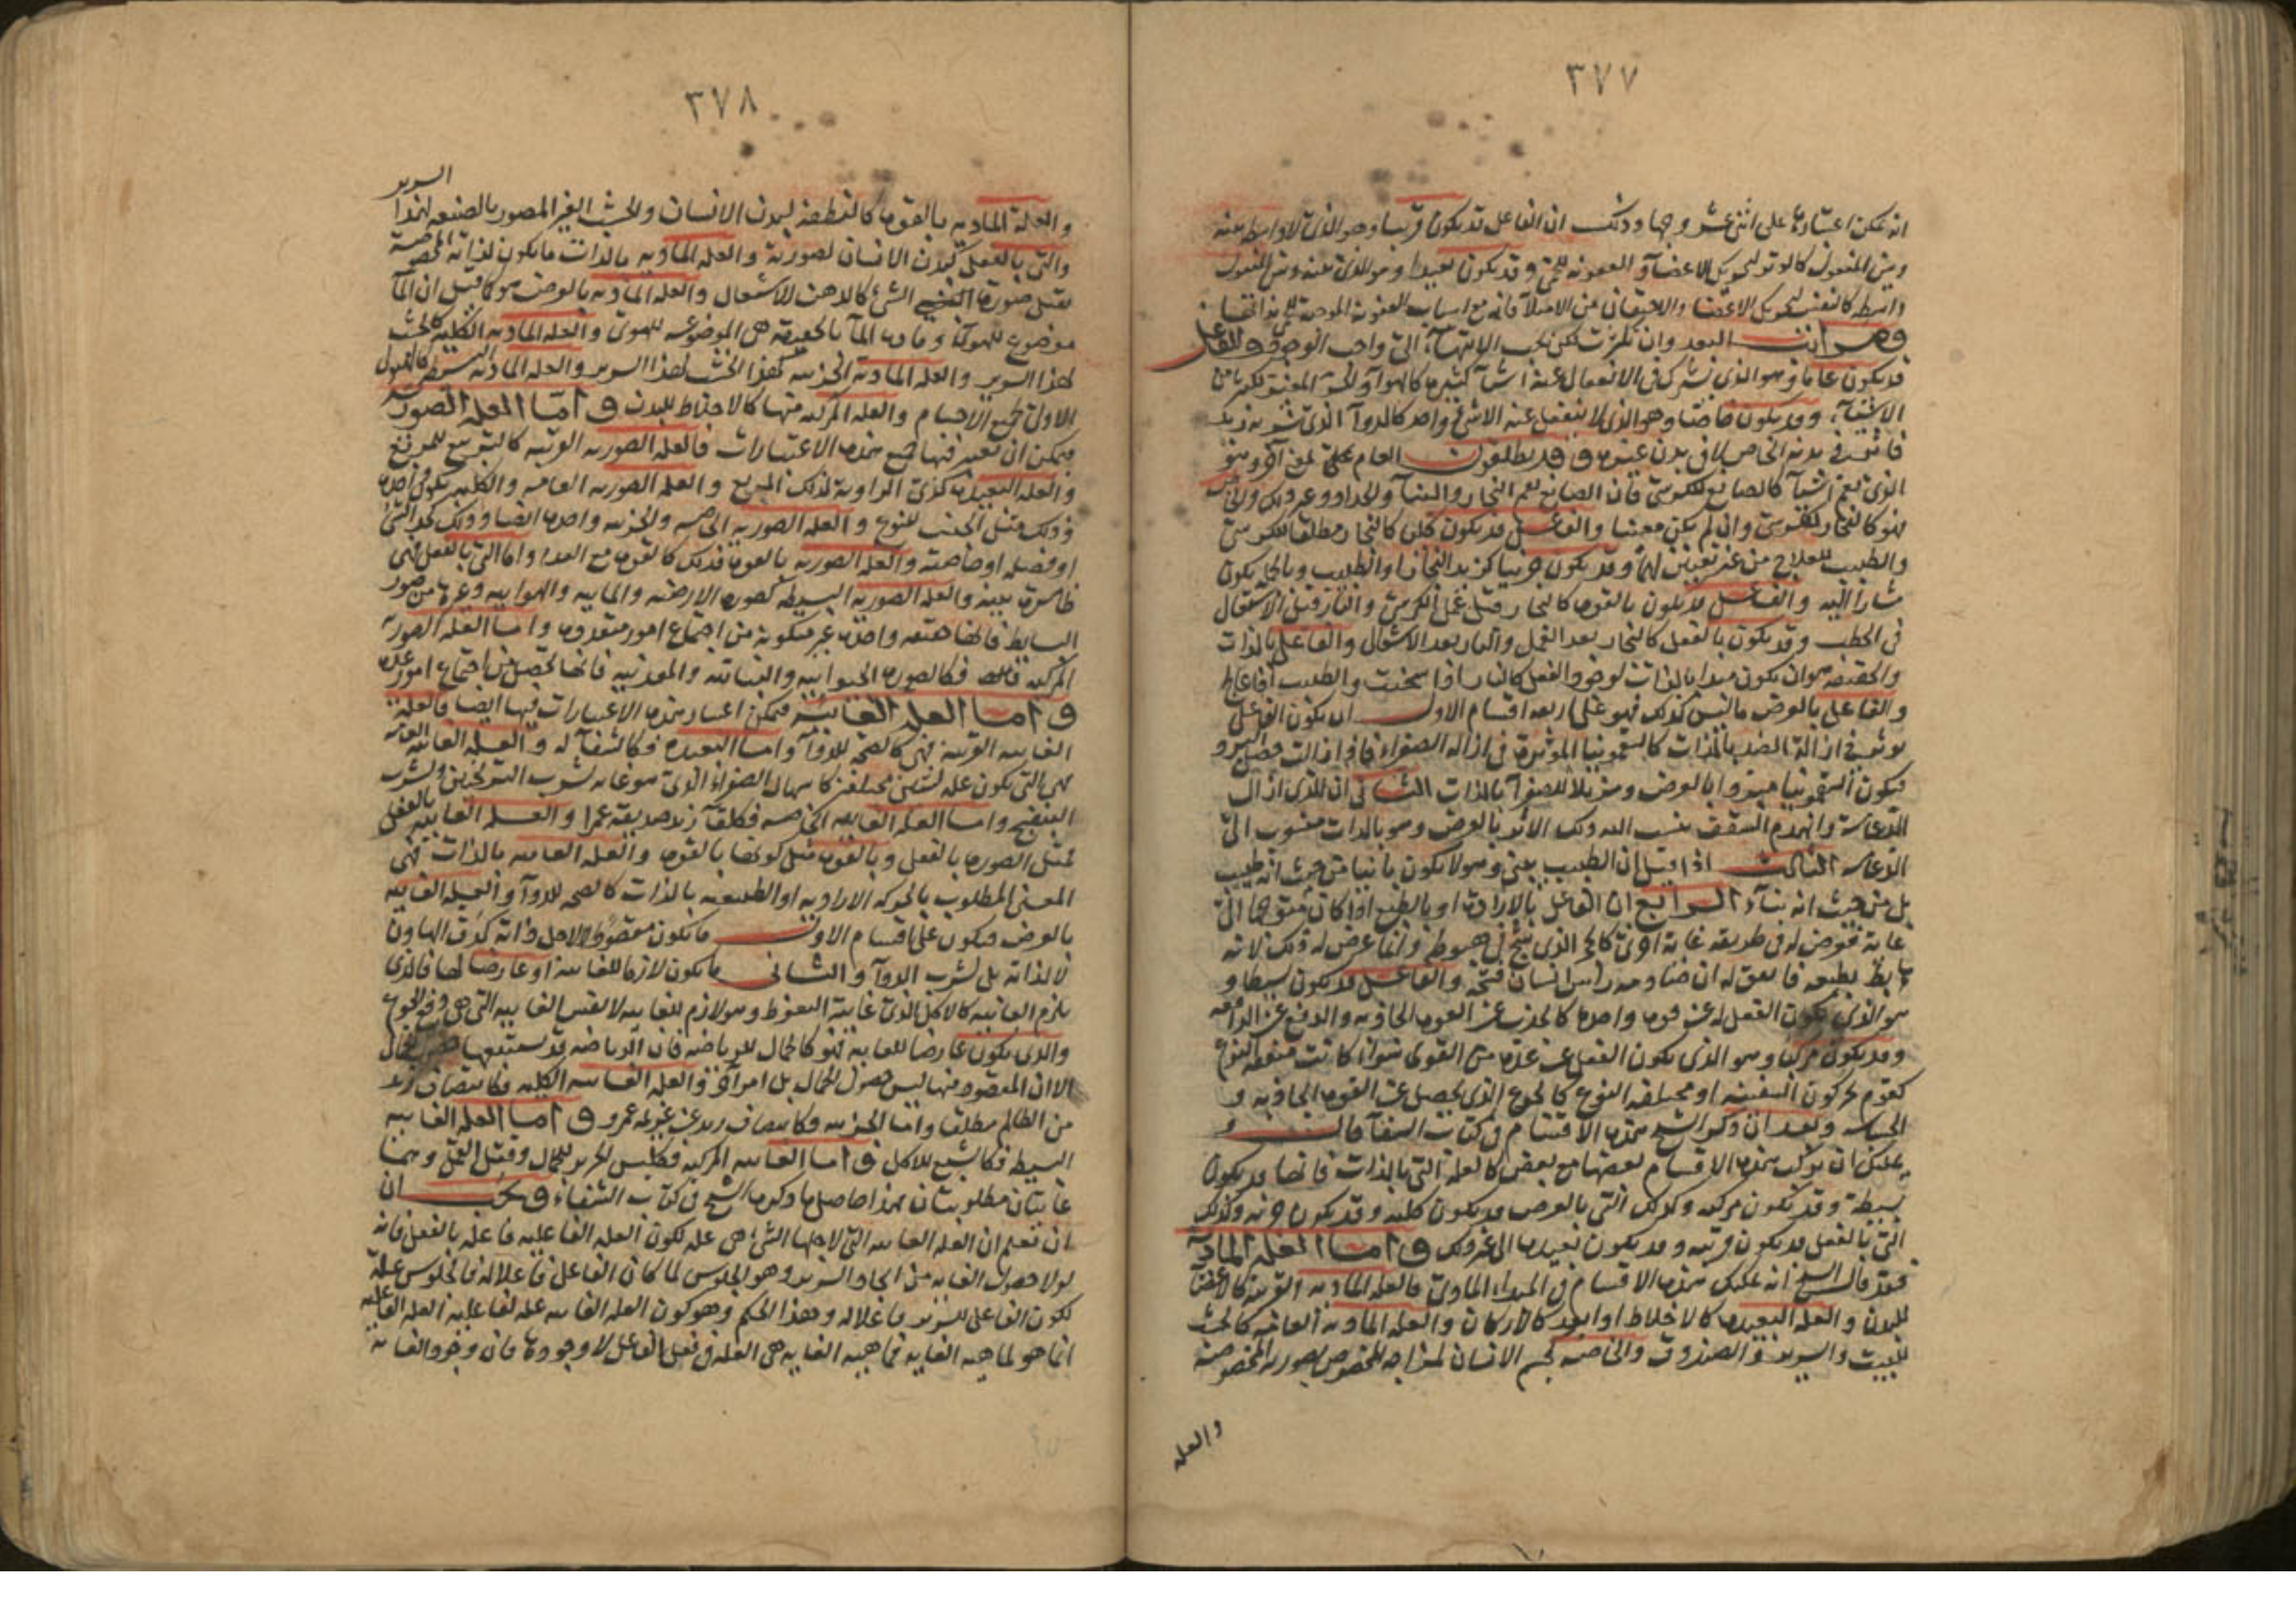 ٣٧٧
انه يمكن اعتبارها على اثنى عشر وجها وذلك ان الفاعل قد يكون قريبا وهو الذى لا واسطة بينه
وبين المفعول كالوتر لتحريك الاعضاء والعفونة للحمى وقد يكون بعيدا وهو الذى بينه وبين المفعول
واسطة كالنفس لتحريك الاعضاء والاحتقان عن الامتلاء فانه مع اسباب العفونة الموجبة للحمى
البعد وان تكثرت لكن يجب الانتهاء الى واجب الوجود والفاعل
قد يكون عاما وهو الذى يشترك فى الانفعال عنه اشياء كثيرة كالهواء المغير لكثير من
الاشياء وقد يكون خاصا وهو الذى لا ينفعل عنه الا شىء واحد كالدواء الذى شربه زيد
فاثر فى بدنه الخاص لا فى بدن غيره وقد يطلقون العام على معنى آخر وهو
الذى يعم اشياء كالصانع للكرسى فان الصانع يعم النجار والبناء والحداد وغير ذلك والخاص
فهو كالنجار للكرسى وان لم يكن معينا والفاعل قد يكون كليا كالنجار مطلقا للكرسى
والطبيب للعلاج من غير تعيين لهما وقد يكون جزئيا كزيد النجار او الطبيب وبالجملة يكون
مشارا اليه والفاعل قد يكون بالقوة كالنجار قبل عمل الكرسى والنار قبل الاشتعال
فى الحطب وقد يكون بالفعل كالنجار بعد العمل والنار بعد الاشتعال والفاعل بالذات
والحقيقة هو ان يكون مبدا بالذات لوجود الفعل كالنار اذا سخنت والطبيب اذا عالج
والفاعل بالعرض ما ليس كذلك فهو على اربعة اقسام الاول ان يكون الفاعل
يؤثر فى ازالة الضد بالذات كالسقمونيا المؤثرة فى ازالة الصفراء فاذا زالت حصل التبريد
فيكون السقمونيا مبردا بالعرض ومزيلا للصفراء بالذات الثانى ان الذى ازال
الدعامة وانهدم السقف ينسب اليه ذلك الاثر بالعرض وهو بالذات منسوب الى
الدعامة الثالث اذا قيل ان الطبيب يبنى وهو لا يكون بانيا من حيث انه طبيب
بل من حيث انه بناء الرابع ان الفاعل بالارادة او بالطبع اذا كان متوجها الى
غاية فعرض له فى طريقه غاية اخرى كالحجر الذى يشج فى هبوطه وانما عرض له ذلك لانه
هابط بطبعه فاتفق له ان صادمه راس انسان فشجه والفاعل قد يكون بسيطا و
هو الذى يكون الفعل له عن قوة واحدة كالجذب عن القوة الجاذبة والدفع عن الدافعة
وقد يكون مركبا وهو الذى يكون الفعل عن عدة من القوى سواء كانت متفقة النوع
كقوم يحركون السفينة او مختلفة النوع كالجوع الذى يحصل عن القوة الجاذبة و
الحساسة وبعد ان ذكر الشيخ هذه الاقسام فى كتاب الشفاء قال و
يمكنك ان تركب هذه الاقسام بعضها مع بعض كالعلة التى بالذات فانها قد يكون
بسيطة وقد يكون مركبة وكذلك التى بالعرض قد يكون كلية وقد يكون جزئية وكذلك
التى بالفعل قد يكون قريبة وقد يكون بعيدة الى غير ذلك واما العلة المادية
فقد قال الشيخ انه يمكنك هذه الاقسام فى المبداء المادى فالعلة المادية القريبة كالاعضاء
للبدن والعلة البعيدة كالاخلاط او ابعد كالاركان والعلة المادية العامة كالخشب
للبيت والسرير والصندوق والخاصة كجسم الانسان لمزاجه المخصوص بصورته المخصوصة
والعلة
٣٧٨
السرير
والعلة المادية بالقوة كالنطفة لبدن الانسان والخشب الغير المصور بالصنعة لهذا
والتى بالفعل كبدن الانسان لصورته والعلة المادية بالذات ما يكون لذاته المخصصة
يقبل صورة الشىء كالدهن للاشتعال والعلة المادية بالعرض هو كما قيل ان الماء
موضوع للهواء ومادة الماء بالحقيقة هى الموضوعة للهواء والعلة المادية الكلية كالخشب
لهذا السرير والعلة المادية الجزئية كهذا الخشب لهذا السرير والعلة المادية البسيطة كالهيولى
الاولى لجميع الاجسام والعلة المركبة منها كالاخلاط للبدن واما العلة الصورية
فيمكن ان تعتبر فيها جميع هذه الاعتبارات فالعلة الصورية القريبة كالتربيع للمربع
والعلة البعيدة كذى الزاوية لذلك المربع والعلة الصورية العامة والكلية يكون واحدة
وذلك مثل الجنس للنوع والعلة الصورية الخاصة والجزئية واحدة ايضا وذلك كحد الشىء
او فصله او خاصته والعلة الصورية بالقوة فذلك كالقوة مع العدم واما التى بالفعل فهى
ظاهرة بينة والعلة الصورية البسيطة كصورة الارضية والمائية والهوائية وغيره من صور
البسايط فانها حقيقة واحدة غير متكونة من اجتماع امور متعددة واما العلة الصورية
المركبة فكالصورة الحيوانية والنباتية والمعدنية فانها يحصل من اجتماع امور عدة
واما العلة الغائية فيمكن اعتبار هذه الاعتبارات فيها ايضا فالعلة
الغائية القريبة فهى كالصحة للدواء واما البعيدة فكالشفاء له والعلة الغائية العامة
هى التى يكون علة لشيئين مختلفين كاسهال الصفراء الذى هو غاية لشرب الترنجبين ولشرب
البنفسج واما العلة الغائية الخاصة فكلقاء زيد صديقه عمرا والعلة الغائية بالفعل
بمثل الصورة بالفعل وبالقوة مثل كونها بالقوة والعلة الغائية بالذات فهى
المعنى المطلوب بالحركة الارادية او الطبيعية بالذات كالصحة للدواء والعلة الغائية
بالعرض فيكون على اقسام الاول ما يكون مقصودا لا لاجل ذاته كدق الهاون
لا لذاته بل لشرب الدواء والثانى ما يكون لازما للغاية او عارضا لها فالذى
يلزم الغاية كالاكل الذى غايته التغوط وهو لازم للغاية لا نفس الغاية التى هى دفع الجوع
والذى يكون عارضا للغاية فهو كالجمال للرياضة فان الرياضة قد يستتبعها حصول الجمال
الا ان المقصود منها ليس حصول الجمال بل امر آخر والعلة الغائية الكلية فكانتصاف زيد
من الظالم مطلقا واما الجزئية فكانتصاف زيد عن غريمه عمرو واما العلة الغائية
البسيطة فكالشبع للاكل واما الغاية المركبة فكلبس الحرير للجمال وقتل القمل وهما
غايتان مطلوبتان هذا حاصل ما ذكره الشيخ فى كتاب الشفاء ويجب ان
ان تعلم ان العلة الغائية التى لاجلها الشىء هى علة لكون العلة الفاعلية فاعلة بالفعل فانه
لولا حصول الغاية من ايجاد السرير وهو الجلوس لما كان الفاعل فاعلا له فالجلوس علة
لكون الفاعل للسرير فاعلا له وهذا الحكم وهو كون العلة الغائية علة لفاعلية العلة الفاعلية
انما هو لماهية الغاية فماهية الغاية هى العلة فى فعل الفاعل لا وجودها فان وجود الغاية